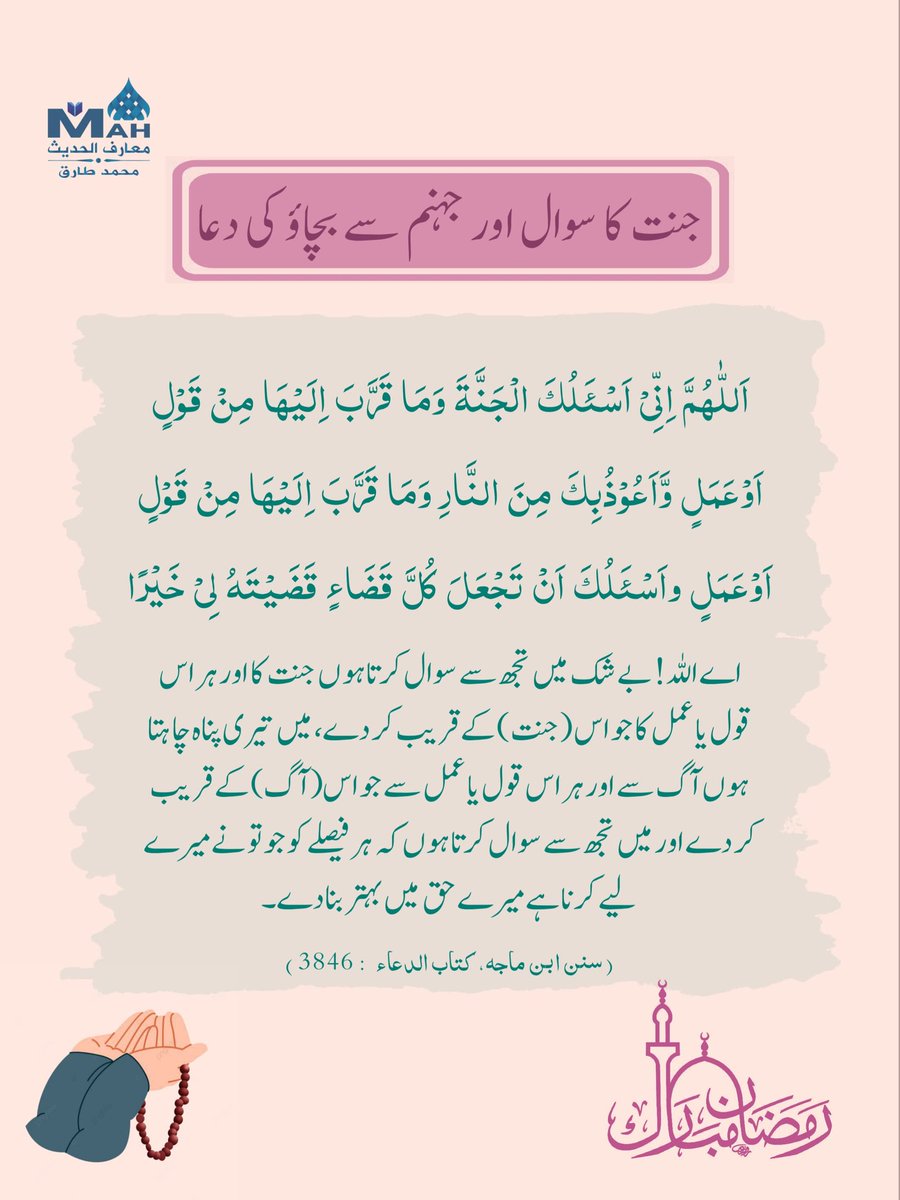 MAH
معارف الحدیث
محمد طارق
جنت کا سوال اور جہنم سے بچاؤ کی دعا
اَللّٰهُمَّ اِنِّىْ اَسْئَلُكَ الْجَنَّةَ وَمَا قَرَّبَ اِلَيْهَا مِنْ قَوْلٍ
اَوْعَمَلٍ وَّاَعُوْذُبِكَ مِنَ النَّارِ وَمَا قَرَّبَ اِلَيْهَا مِنْ قَوْلٍ
اَوْعَمَلٍ واَسْئَلُكَ اَنْ تَجْعَلَ كُلَّ قَضَاءٍ قَضَيْتَهُ لِىْ خَيْرًا
اے اللہ! بے شک میں تجھ سے سوال کرتا ہوں جنت کا اور ہر اس
قول یا عمل کا جو اس (جنت) کے قریب کر دے، میں تیری پناہ چاہتا
ہوں آگ سے اور ہر اس قول یا عمل سے جو اس (آگ) کے قریب
کر دے اور میں تجھ سے سوال کرتا ہوں کہ ہر فیصلے کو جو تو نے میرے
لیے کرنا ہے میرے حق میں بہتر بنا دے۔
(سنن ابن ماجہ، کتاب الدعاء : 3846)
رمضان مبارك